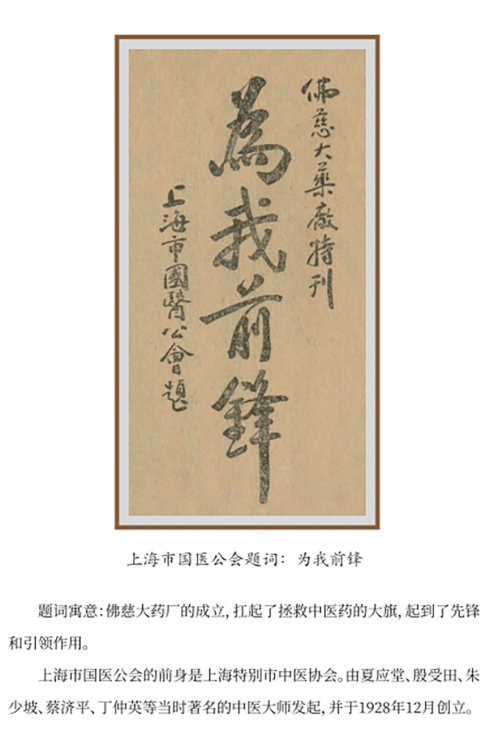 佛慈大藥廠特刊
為我前鋒
上海市國醫公會題
上海市国医公会题词：为我前锋
题词寓意：佛慈大药厂的成立，扛起了拯救中医药的大旗，起到了先锋
和引领作用。
上海市国医公会的前身是上海特别市中医协会。由夏应堂、殷受田、朱
少坡、蔡济平、丁仲英等当时著名的中医大师发起，并于1928年12月创立。